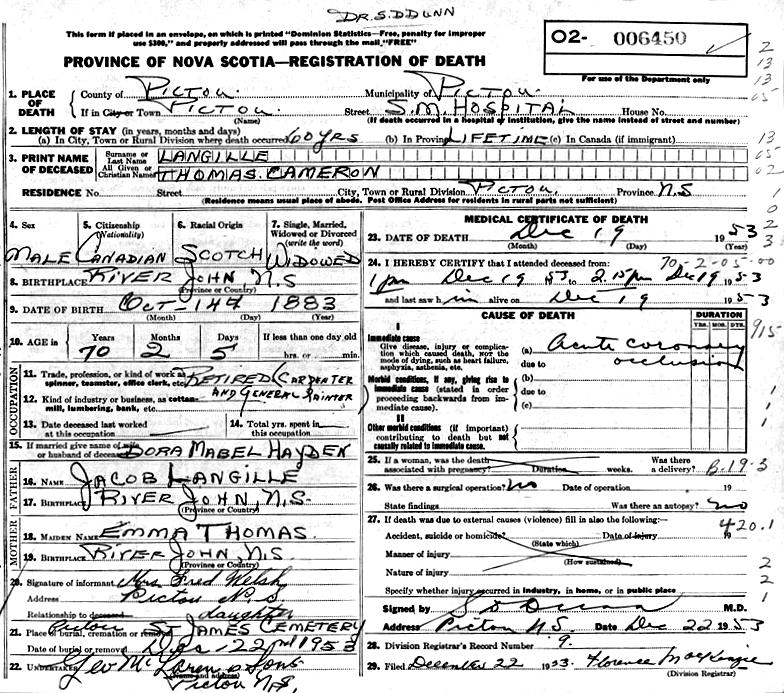 DR. S.D DUNN
This form if placed in an envelope, on which is printed "Dominion Statistics—Free, penalty for improper
use $300," and properly addressed will pass through the mail "FREE"
PROVINCE OF NOVA SCOTIA—REGISTRATION OF DEATH
02- 006450
For use of the Department only
1. PLACE OF DEATH County of PICTOU Municipality of PICTOU
If in City or Town PICTOU (Name) Street S.M. HOSPITAL House No.
(If death occurred in a hospital or institution, give the name instead of street and number)
2. LENGTH OF STAY (in years, months and days)
(a) In City, Town or Rural Division where death occurred 60 YRS (b) In Province LIFETIME (c) In Canada (if immigrant)
3. PRINT NAME OF DECEASED Surname or Last Name LANGILLE
All Given or Christian Names THOMAS CAMERON
RESIDENCE No. Street City, Town or Rural Division PICTOU Province N.S
(Residence means usual place of abode. Post Office Address for residents in rural parts not sufficient)
4. Sex 5. Citizenship (Nationality) 6. Racial Origin 7. Single, Married, Widowed or Divorced (write the word)
MALE CANADIAN SCOTCH WIDOWED
8. BIRTHPLACE RIVER JOHN N.S
(Province or Country)
9. DATE OF BIRTH OCT- 14th 1883
(Month) (Day) (Year)
10. AGE in Years Months Days If less than one day old
70 2 5 hrs. or min.
OCCUPATION
11. Trade, profession, or kind of work as spinner, teamster, office clerk, etc. RETIRED (CARPENTER
12. Kind of industry or business, as cotton mill, lumbering, bank, etc. AND GENERAL PAINTER)
13. Date deceased last worked at this occupation 14. Total yrs. spent in this occupation
15. If married give name of wife or husband of deceased DORA MABEL HAYDEN
FATHER
16. NAME JACOB LANGILLE
17. BIRTHPLACE RIVER JOHN, N.S.
(Province or Country)
MOTHER
18. MAIDEN NAME EMMA THOMAS.
19. BIRTHPLACE RIVER JOHN, N.S
(Province or Country)
20. Signature of informant Mrs Fred Welsh
Address Pictou N.S
Relationship to deceased daughter
21. Place of burial, cremation or removal Pictou ST JAMES CEMETERY
Date of burial or removal Dec - 22nd 1953
22. UNDERTAKER Geo McLaren & Sons
(Name and address)
Pictou N.S.
MEDICAL CERTIFICATE OF DEATH
23. DATE OF DEATH Dec 19 1953
(Month) (Day) (Year)
24. I HEREBY CERTIFY that I attended deceased from: 70-2-05-00
1 pm Dec 19 53 to 2.15 pm Dec 19 1953
and last saw him alive on Dec 19 1953
CAUSE OF DEATH DURATION
YRS. MOS. DYS.
I
Immediate cause
Give disease, injury or complication which caused death, NOT the mode of dying, such as heart failure, asphyxia, asthenia, etc.
(a) Acute coronary
due to occlusion
Morbid conditions, if any, giving rise to immediate cause (stated in order proceeding backwards from immediate cause).
(b)
due to
(c)
II
Other morbid conditions (if important) contributing to death but not causally related to immediate cause.
25. If a woman, was the death associated with pregnancy? Duration weeks. Was there a delivery? B-19-3
26. Was there a surgical operation? no Date of operation 19
State findings Was there an autopsy? no
27. If death was due to external causes (violence) fill in also the following: 420.1
Accident, suicide or homicide? Date of injury 19
(State which)
Manner of injury
(How sustained)
Nature of injury
Specify whether injury occurred in industry, in home, or in public place
Signed by S D Dunn M.D.
Address Pictou N S Date Dec 22 1953
28. Division Registrar's Record Number 9.
29. Filed December 22 1953. Florence MacKenzie
(Division Registrar)
2
13
13
05
13
05
02
1
0
2
3
915
1
1
1
2
2
1